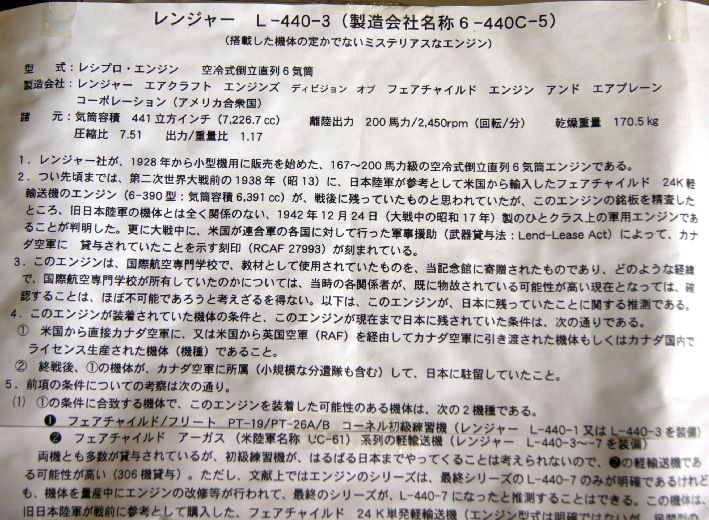 レンジャー L-440-3(製造会社名称6-440C-5)
(搭載した機体の定かでないミステリアスなエンジン)
型 式:レシプロ・エンジン 空冷式倒立直列6気筒
製造会社:レンジャー エアクラフト エンジンズ ディビジョン オブ フェアチャイルド エンジン アンド エアプレーン
コーポレーション(アメリカ合衆国)
諸 元:気筒容積 441立方インチ(7,226.7cc) 離陸出力 200馬力/2,450rpm(回転/分) 乾燥重量 170.5kg
圧縮比 7.51 出力/重量比 1.17
1.レンジャー社が、1928年から小型機用に販売を始めた、167~200馬力級の空冷式倒立直列6気筒エンジンである。
2.つい先頃までは、第二次世界大戦前の1938年(昭13)に、日本陸軍が参考として米国から輸入したフェアチャイルド 24K軽
輸送機のエンジン(6-390型:気筒容積6,391cc)が、戦後に残っていたものと思われていたが、このエンジンの銘板を精査した
ところ、旧日本陸軍の機体とは全く関係のない、1942年12月24日(大戦中の昭和17年)製のひとクラス上の軍用エンジンであ
ることが判明した。更に大戦中に、米国が連合軍の各国に対して行った軍事援助(武器貸与法:Lend-Lease Act)によって、カナ
ダ空軍に 貸与されていたことを示す刻印(RCAF 27993)が刻まれている。
3.このエンジンは、国際航空専門学校で、教材として使用されていたものを、当記念館に寄贈されたものであり、どのような経緯
で、国際航空専門学校が所有していたのかについては、当時の各関係者が、既に物故されている可能性が高い現在となっては、確
認することは、ほぼ不可能であろうと考えざるを得ない。以下は、このエンジンが、日本に残っていたことに関する推測である。
4.このエンジンが装着されていた機体の条件と、このエンジンが現在まで日本に残されていた条件は、次の通りである。
① 米国から直接カナダ空軍に、又は米国から英国空軍(RAF)を経由してカナダ空軍に引き渡された機体もしくはカナダ国内で
ライセンス生産された機体(機種)であること。
② 終戦後、①の機体が、カナダ空軍に所属(小規模な分遣隊も含む)して、日本に駐留していたこと。
5.前項の条件についての考察は次の通り。
(1) ①の条件に合致する機体で、このエンジンを装着した可能性のある機体は、次の2機種である。
❶ フェアチャイルド/フリート PT-19/PT-26A/B コーネル初級練習機(レンジャー L-440-1又はL-440-3を装備)
❷ フェアチャイルド アーガス(米陸軍名称 UC-61)系列の軽輸送機(レンジャー L-440-3~-7を装備)
両機とも多数が貸与されているが、初級練習機が、はるばる日本までやってくることは考えられないので、❷の軽輸送機であ
る可能性が高い(306機貸与)。ただし、文献上ではエンジンのシリーズは、最終シリーズのL-440-7のみが明確であるけれど
も、機体を量産中にエンジンの改修等が行われて、最終のシリーズが、L-440-7になったと推測することはできる。この機体は、
旧日本陸軍が戦前に参考として購入した、フェアチャイルド 24K単発軽輸送機(エンジン型式は明確ではないが、民間型の